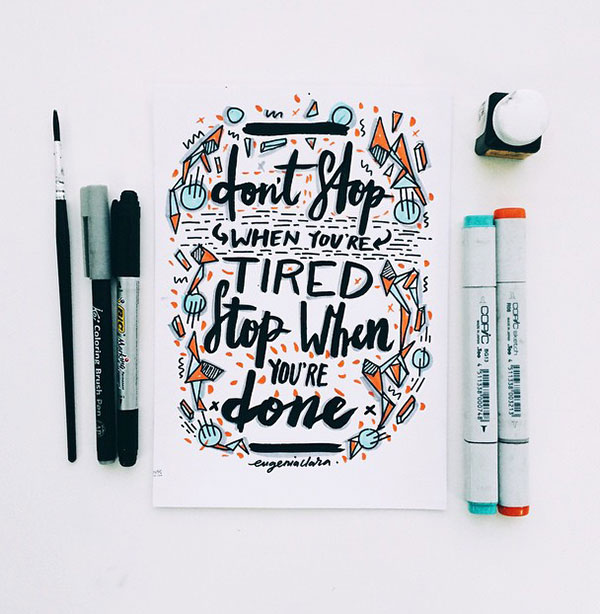 don't Stop
WHEN YOU'RE
TIRED
Stop When
YOU'RE
done
eugeniaclara.
Coloring Brush Pen
COPIC
BG13
COPIC sketch